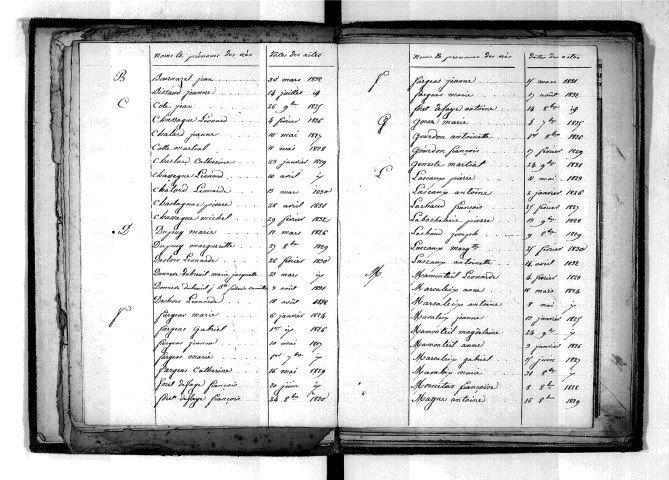 Noms & prénoms des nés Dates des actes
B Bournazel jean 30 mars 1832
jeanne 14 juillet id
C Cote jean 26 9bre 1825
Chassagne Léonard 4 février 1826
Chalard jeanne 10 mai 1827
Cotte martial 11 mai 1828
Catherine 29 janvier 1829
Chassagne Léonard 10 avril id
Chalard Léonarde 13 mars 1830
Chastagnac pierre 28 avril 1831
Chassagne michel 29 février 1832
D Dupuy marie 12 mars 1826
Dupuy margueritte 27 8bre 1829
Léonarde 26 février 1830
marie 23 mars id
9 août 1831
Léonarde 18 août 1832
F fargeas marie 6 janvier 1824
fargeas Gabriel 1er id 1826
fargeas jeanne 10 mai 1827
fargeas marie 1er 7bre id
fargeas Catherine 16 mai 1829
foret defaye françois 20 juin id
foret defaye françois 24 8bre 1830
Noms & prenoms des nés Dates des actes
f fargeas jeanne 15 mars 1831
fargeas marie 17 août 1832
foret defaye antoine 14 8bre id
G marie 4 7bre 1825
Gourdon antoinette 1er 8bre 1826
Gourdon françois 17 février 1829
Geneste martial 24 9bre 1831
L Lascaux pierre 11 mai 1825
Lascaux antoine 2 janvier 1826
Lachaud françois 25 février 1827
Labachelerie pierre 19 9bre 1828
Lachaud joseph 9 8bre 1829
Lascaux margte 25 février 1830
Lascaux antoinette 14 avril 1832
M Mamonteil Léonarde 4 février 1823
Marsaleix anne 10 mars 1824
Marsaleix antoine 8 mai id
Mavaleix jeanne 13 janvier 1825
Mamonteil magdelaine 24 9bre id
Mamonteil anne 9 janvier 1826
Marsaleix gabriel 17 juin 1827
Mavaleix marie 21 8bre id
françoise 8 8bre 1828
Magne antoine 16 8bre 1829